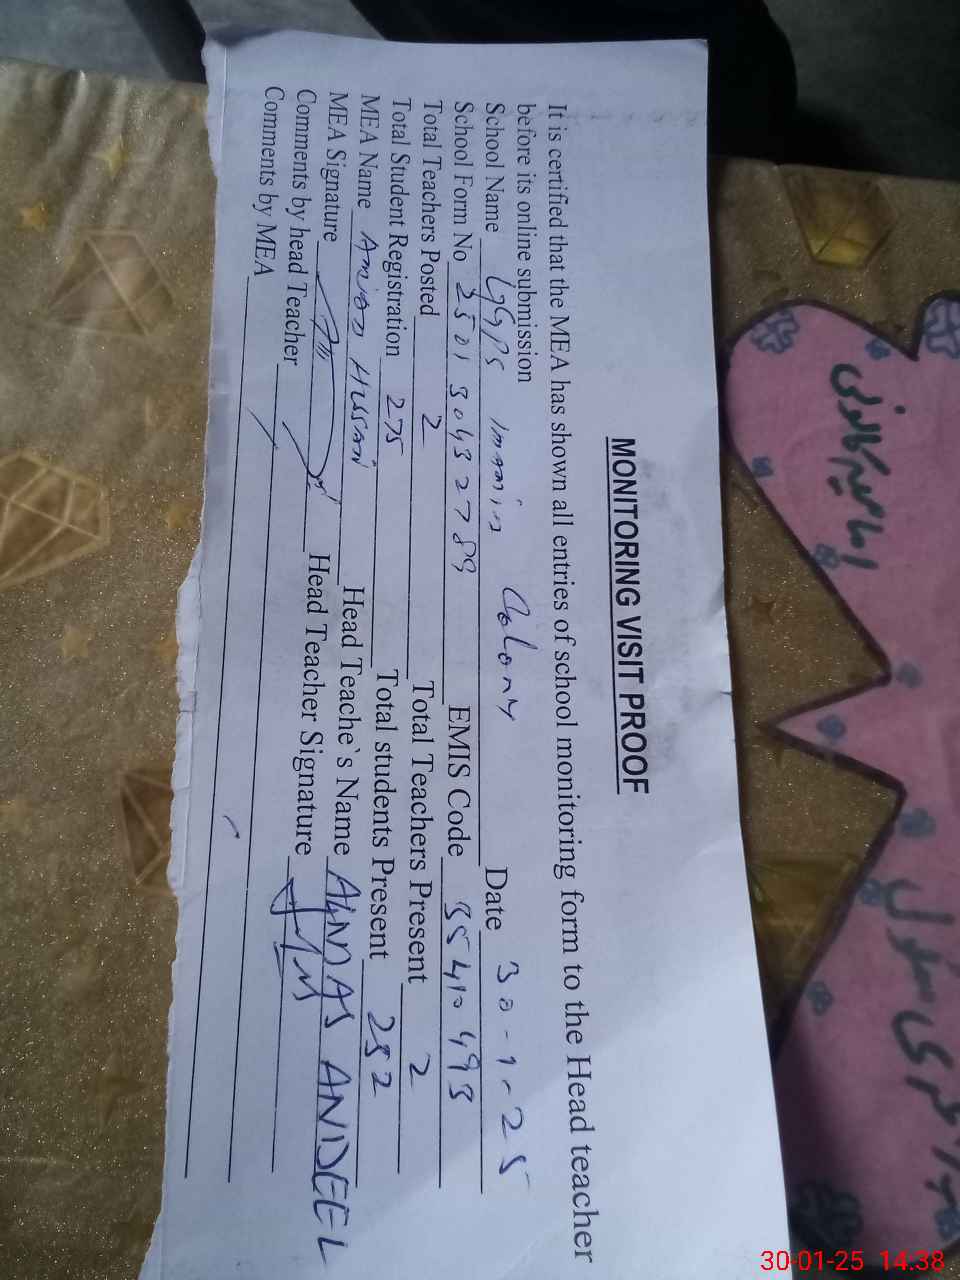 MONITORING VISIT PROOF
It is certified that the MEA has shown all entries of school monitoring form to the Head teacher
before its online submission
School Name GGPS Imamia Colony Date 30-1-25
School Form No 250130432789 EMIS Code 35410493
Total Teachers Posted 2 Total Teachers Present 2
Total Student Registration 275 Total students Present 252
MEA Name Amjad Hussain Head Teache`s Name ALMAS ANDEEL
MEA Signature Head Teacher Signature
Comments by head Teacher
Comments by MEA
امامیہ کالونی
سکول
30-01-25 14:38